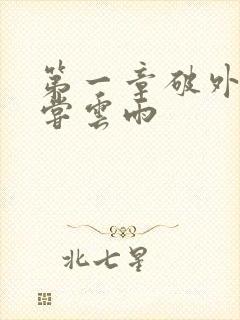 第一章破外
尝雲雨
北七星